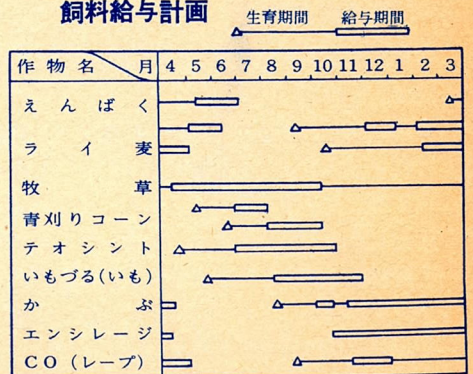 飼料給与計画
生育期間 給与期間
作物名 月 4 5 6 7 8 9 10 11 12 1 2 3
えんばく
ライ麦
牧草
青刈りコーン
テオシント
いもづる(いも)
かぶ
エンシレージ
CO(レープ)